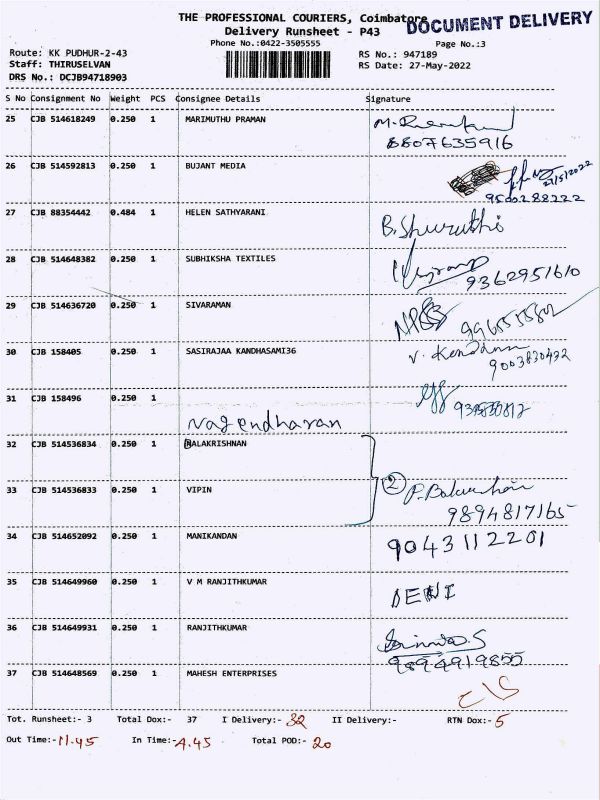 THE PROFESSIONAL COURIERS, Coimbatore
DOCUMENT DELIVERY
Delivery Runsheet - P43
Phone No.:0422-3505555 Page No.:3
Route: KK PUDHUR-2-43 RS No.: 947189
Staff: THIRUSELVAN RS Date: 27-May-2022
DRS No.: DCJB94718903
S No Consignment No Weight PCS Consignee Details Signature
25 CJB 514618249 0.250 1 MARIMUTHU PRAMAN
8807635916
26 CJB 514592813 0.250 1 BUJANT MEDIA
27/5/2022
9500288222
27 CJB 88354442 0.484 1 HELEN SATHYARANI
B. Shuruthi
28 CJB 514648382 0.250 1 SUBHIKSHA TEXTILES
9362951610
29 CJB 514636720 0.250 1 SIVARAMAN
30 CJB 158405 0.250 1 SASIRAJAA KANDHASAMI36
9003830432
31 CJB 158496 0.250 1
Nagendharan
32 CJB 514536834 0.250 1 BALAKRISHNAN
33 CJB 514536833 0.250 1 VIPIN
2
9894817165
34 CJB 514652092 0.250 1 MANIKANDAN
9043112201
35 CJB 514649960 0.250 1 V M RANJITHKUMAR
36 CJB 514649931 0.250 1 RANJITHKUMAR
9894919855
37 CJB 514648569 0.250 1 MAHESH ENTERPRISES
Tot. Runsheet:- 3 Total Dox:- 37 I Delivery:- 32 II Delivery:- RTN Dox:- 5
Out Time:- 11.45 In Time:- 4.45 Total POD:- 20